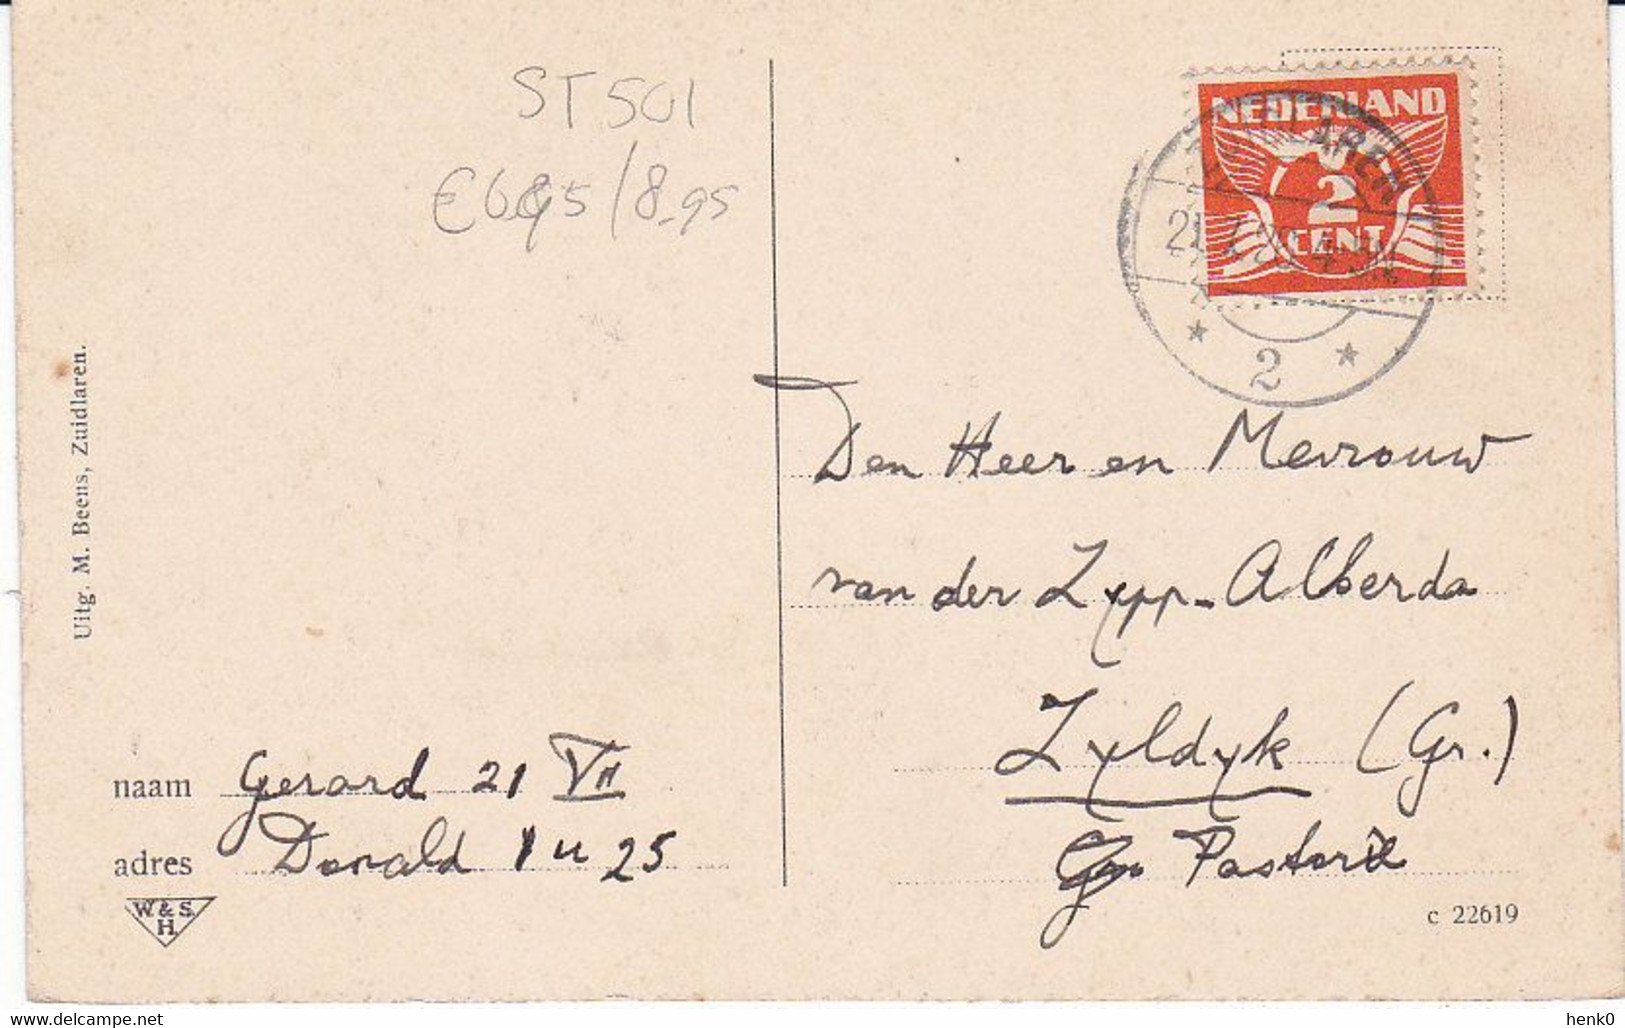 ST 501
€ 6,95 / 8,95
NEDERLAND
2
CENT
LAREN
2
Uitg. M. Beens, Zuidlaren.
Den Heer en Mevrouw
van der Zypp-Alberda
Zyldyk (Gr.)
Pastorie
naam Gerard 21 VII
adres Donald 1 u 25
W. & S.
H.
c 22619
www.delcampe.net
henk0